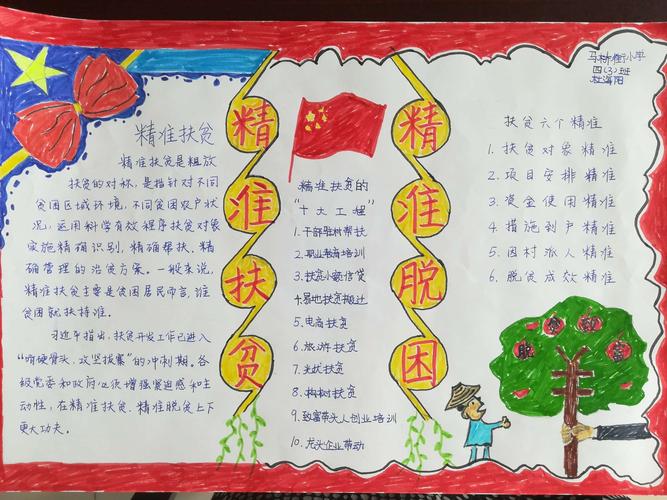 精准扶贫
精准扶贫是粗放
扶贫的对称，是指针对不同
贫困区域环境、不同贫困农户状
况，运用科学有效程序扶贫对象
实施精确识别、精确帮扶、精
确管理的治贫方案。一般来说，
精准扶贫主要是贫困居民而言，谁
贫困就扶持谁。
习近平指出，扶贫开发工作已进入
"啃硬骨头、攻坚拔寨"的冲刺期。各
级党委和政府必须增强紧迫感和主
动性，在精准扶贫、精准脱贫上下
更大功夫。
精准扶贫
精准扶贫的
"十大工程"
1.干部驻村帮扶
2.职业教育培训
3.扶贫小额信贷
4.易地扶贫搬迁
5.电商扶贫
6.旅游扶贫
7.光伏扶贫
8.构树扶贫
9.致富带头人创业培训
10.龙头企业带动
精准脱困
小学
四(3)班
扶贫六个精准
1.扶贫对象精准
2.项目安排精准
3.资金使用精准
4.措施到户精准
5.因村派人精准
6.脱贫成效精准
脱贫致富